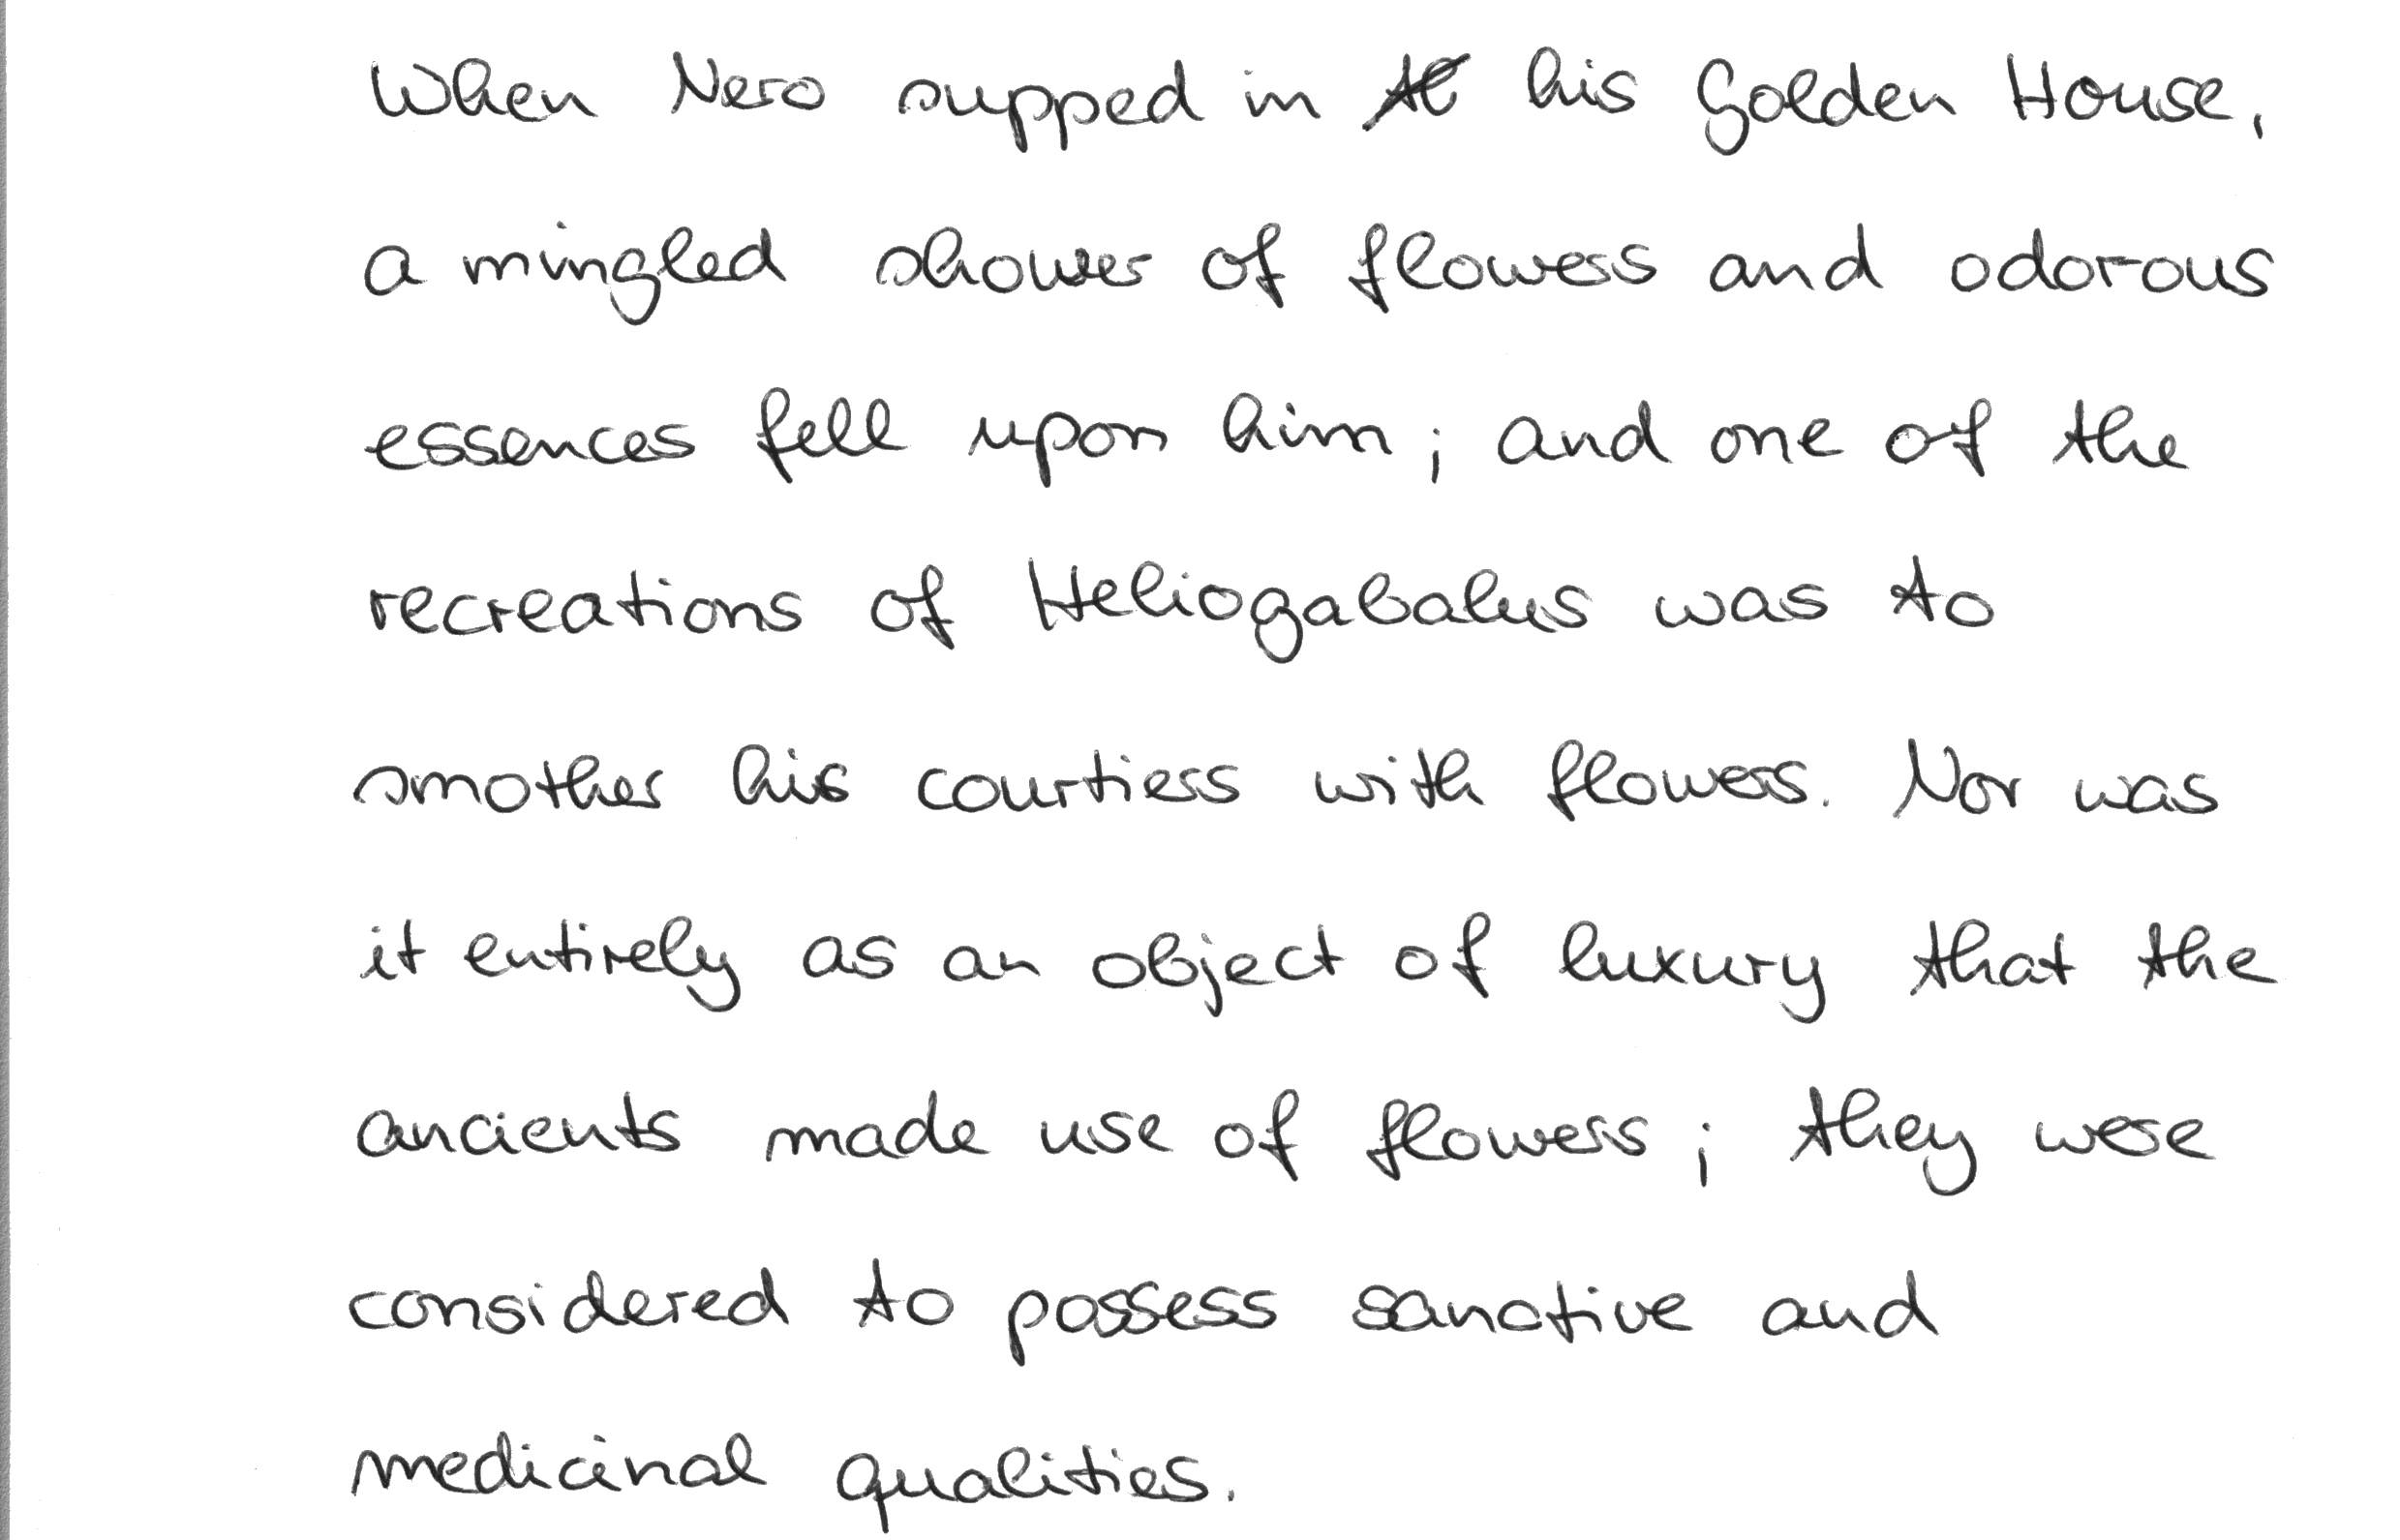 When Nero supped in his Golden House,
a mingled shower of flowers and odorous
essences fell upon him; and one of the
recreations of Heliogabalus was to
smother his courtiers with flowers. Nor was
it entirely as an object of luxury that the
ancients made use of flowers; they were
considered to possess sanative and
medicinal qualities.